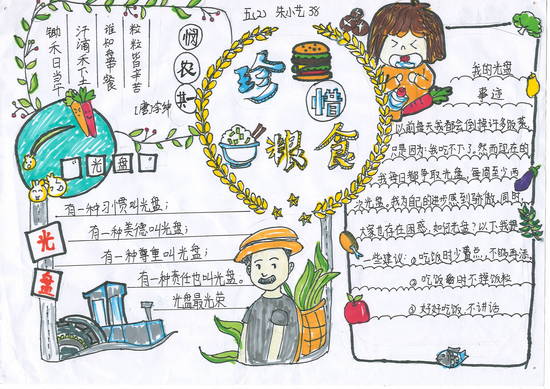 五(2) 朱小艺 38
悯农 其一
【唐】李绅
锄禾日当午
汗滴禾下土
谁知盘餐
粒粒皆辛苦
珍惜
粮食
光盘
有一种习惯叫光盘；
有一种美德叫光盘；
有一种尊重叫光盘；
有一种责任也叫光盘。
光盘最光荣
光盘
我的光盘
事迹
以前每天我都会倒掉许多饭菜，
只是因为我吃不下了，然而现在的
我每日都争取光盘，每周至少两
次光盘。我为自己的进步感到骄傲，同时，
大家也存在困惑：如何光盘？以下我是
一些建议：①吃饭时少盛点，不够再添
②吃饭时不掉饭粒
③好好吃饭，不讲话